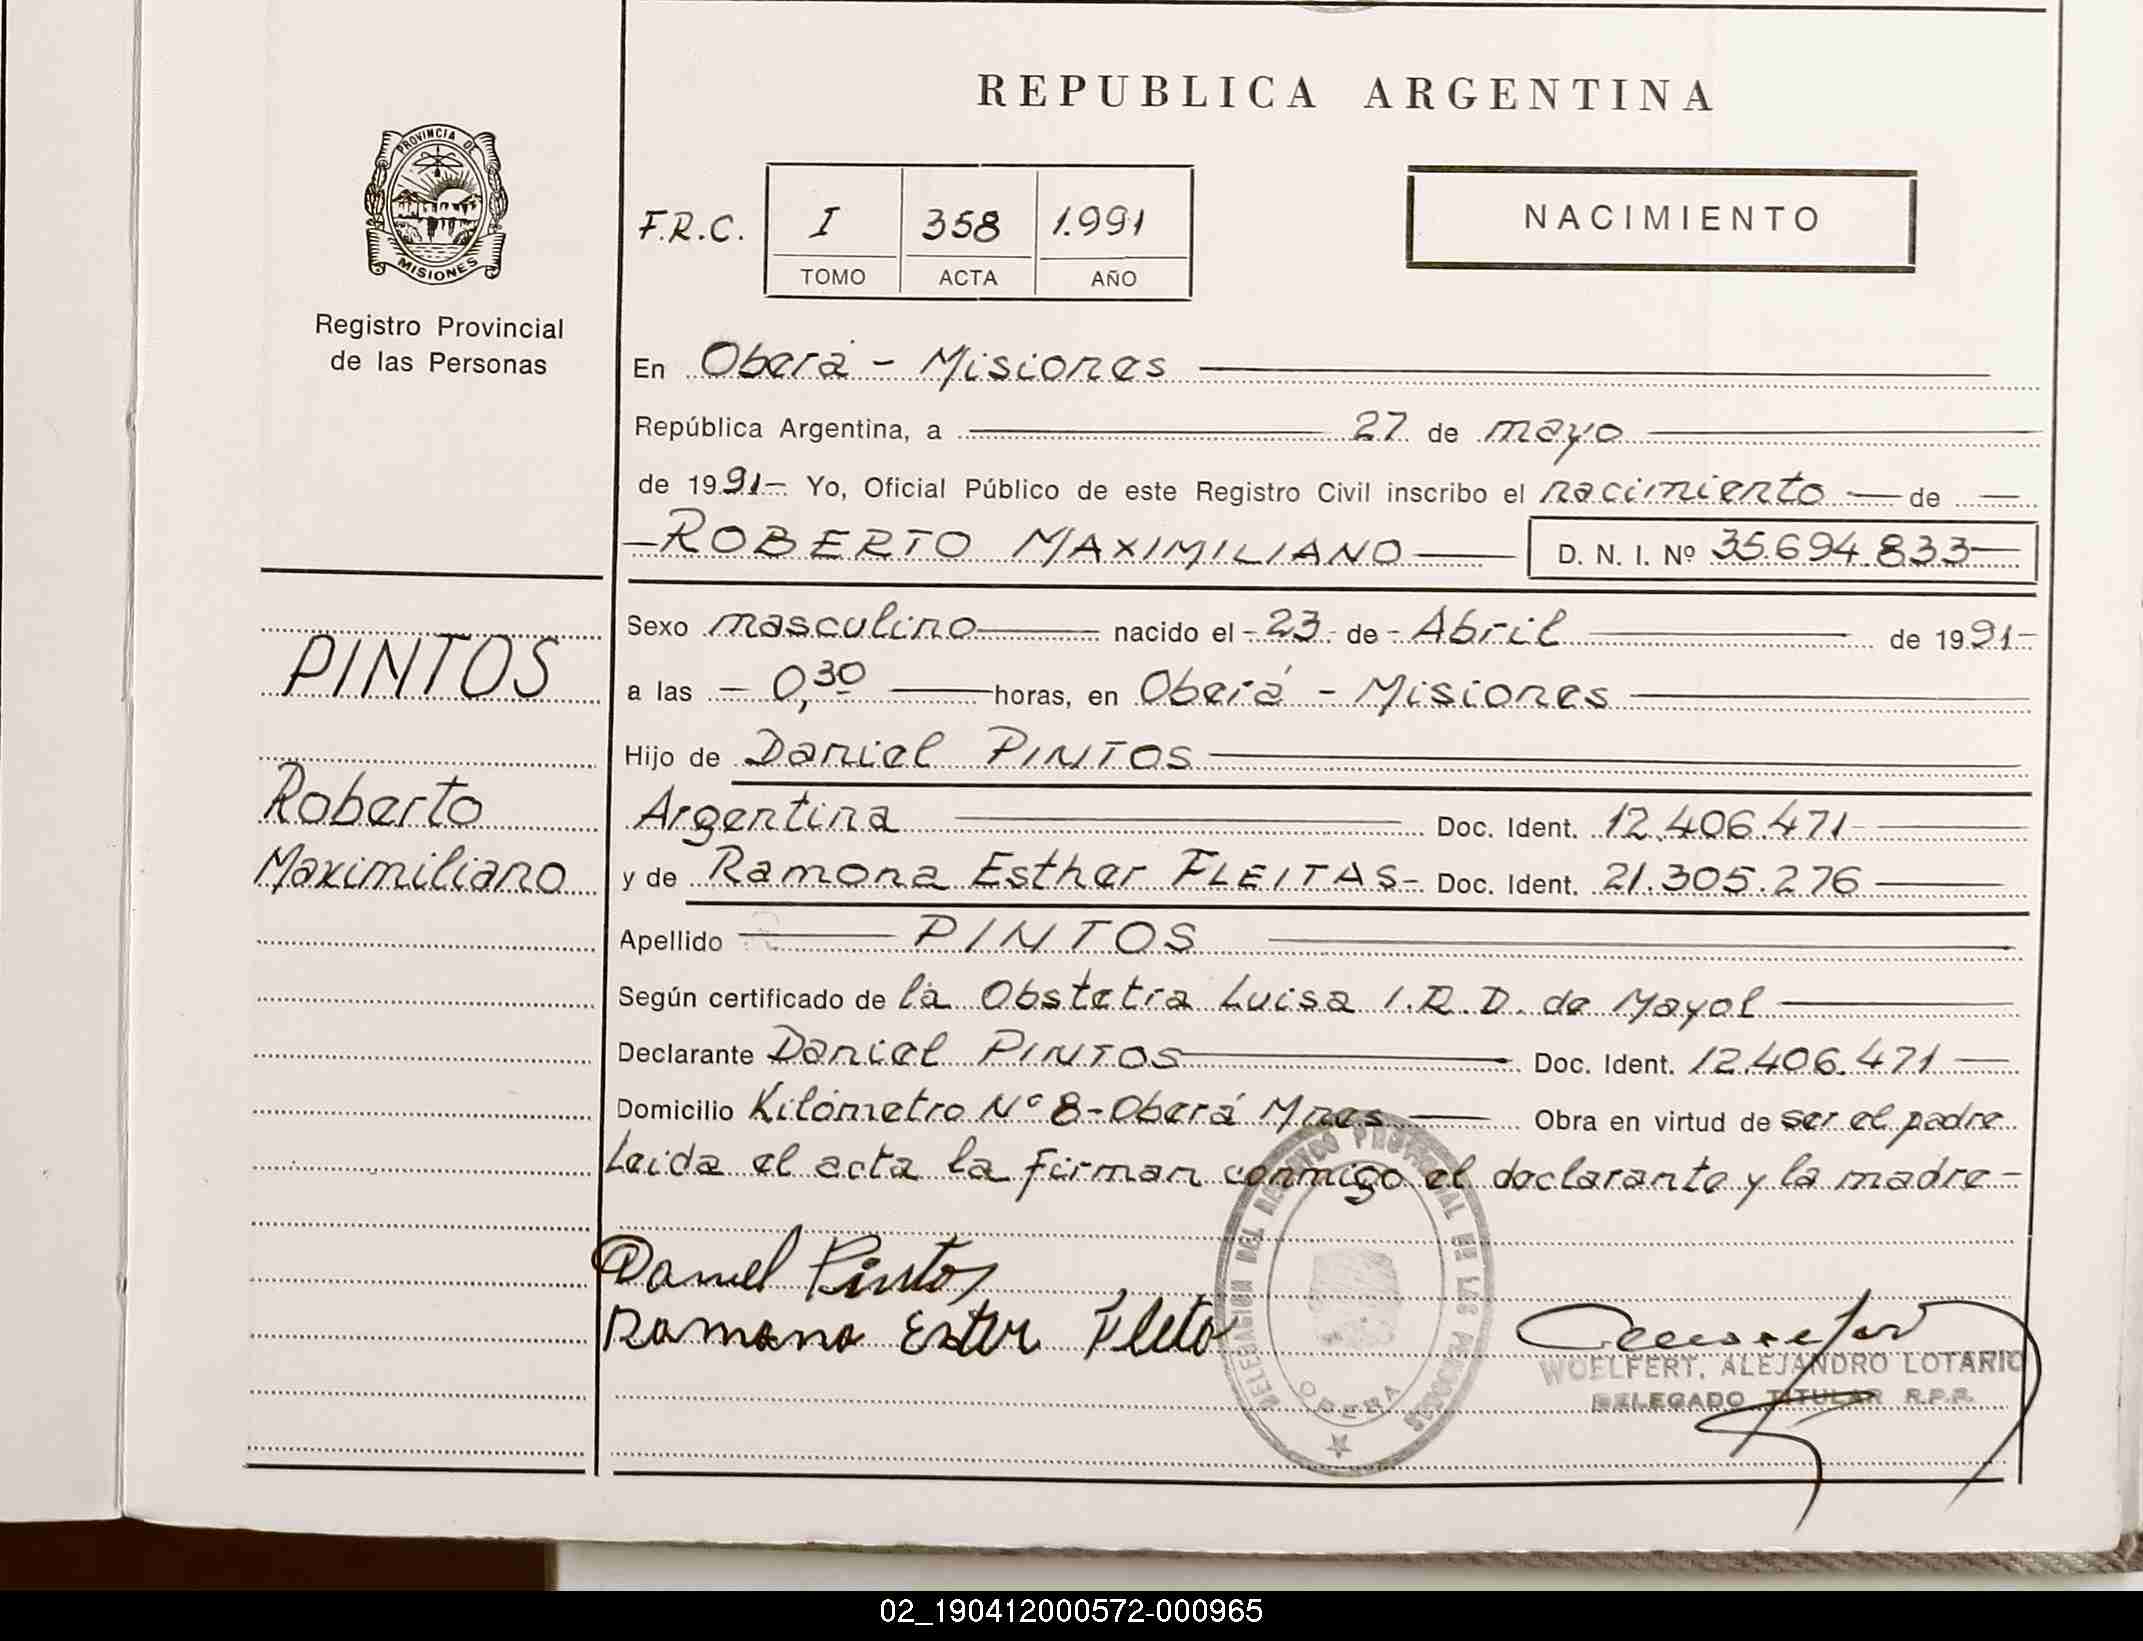 REPUBLICA ARGENTINA
PROVINCIA DE
MISIONES
Registro Provincial
de las Personas
F.R.C. I 358 1.991
TOMO ACTA AÑO
NACIMIENTO
En Oberá - Misiones
República Argentina, a 27 de mayo
de 1991- Yo, Oficial Público de este Registro Civil inscribo el nacimiento de
ROBERTO MAXIMILIANO D. N. I. Nº 35.694.833
PINTOS
Roberto
Maximiliano
Sexo masculino nacido el 23 de Abril de 1991
a las 0,30 horas, en Oberá - Misiones
Hijo de Daniel PINTOS
Argentina Doc. Ident. 12.406.471
y de Ramona Esther FLEITAS Doc. Ident. 21.305.276
Apellido PINTOS
Según certificado de la Obstetra Luisa I.R.D. de Mayol
Declarante Daniel PINTOS Doc. Ident. 12.406.471
Domicilio Kilómetro Nº 8-Oberá Mnes Obra en virtud de ser el padre
Leida el acta la firman conmigo el declarante y la madre
DELEGACION DEL REGISTRO PROVINCIAL DE LAS PERSONAS
OBERA
Daniel Pintos
Ramona Ester
WOELFERT, ALEJANDRO LOTARIO
DELEGADO TITULAR R.P.P.
02_190412000572-000965